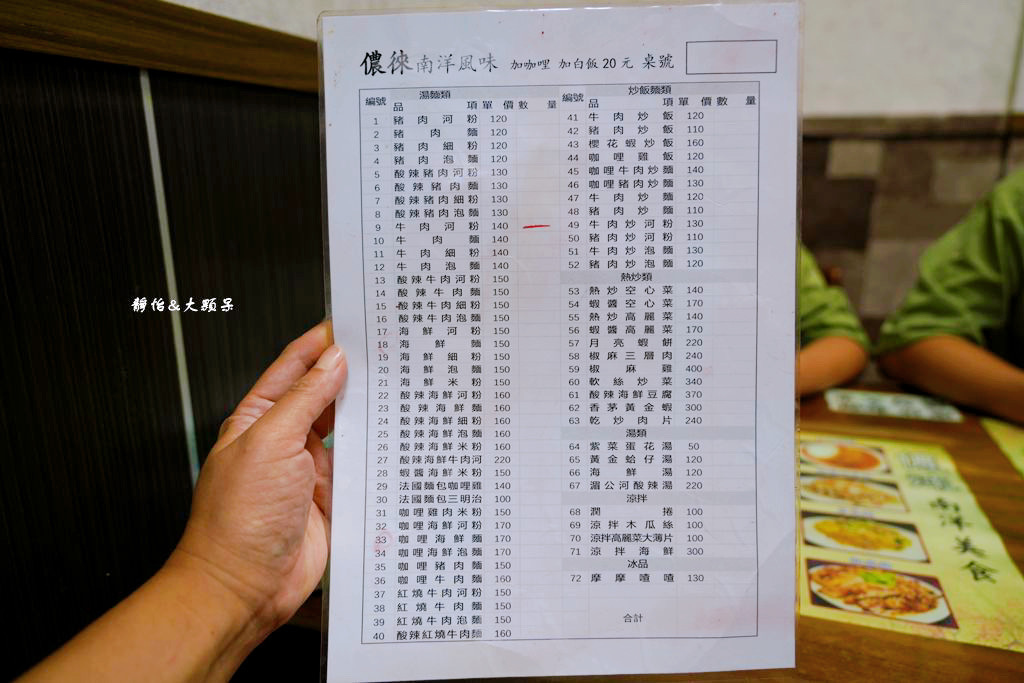 儂徠南洋風味 加咖哩 加白飯 20 元 桌號
編號 湯麵類
品項 單價 數量
1 豬肉河粉 120
2 豬肉麵 120
3 豬肉細粉 120
4 豬肉泡麵 120
5 酸辣豬肉河粉 130
6 酸辣豬肉麵 130
7 酸辣豬肉細粉 130
8 酸辣豬肉泡麵 130
9 牛肉河粉 140
10 牛肉麵 140
11 牛肉細粉 140
12 牛肉泡麵 140
13 酸辣牛肉河粉 150
14 酸辣牛肉麵 150
15 酸辣牛肉細粉 150
16 酸辣牛肉泡麵 150
17 海鮮河粉 150
18 海鮮麵 150
19 海鮮細粉 150
20 海鮮泡麵 150
21 海鮮米粉 150
22 酸辣海鮮河粉 160
23 酸辣海鮮麵 160
24 酸辣海鮮細粉 160
25 酸辣海鮮泡麵 160
26 酸辣海鮮米粉 160
27 酸辣海鮮牛肉河 220
28 蝦醬海鮮米粉 150
29 法國麵包咖哩雞 140
30 法國麵包三明治 100
31 咖哩雞肉米粉 150
32 咖哩海鮮河粉 170
33 咖哩海鮮麵 170
34 咖哩海鮮泡麵 170
35 咖哩豬肉麵 150
36 咖哩牛肉麵 160
37 紅燒牛肉河粉 150
38 紅燒牛肉麵 150
39 紅燒牛肉泡麵 150
40 酸辣紅燒牛肉麵 160
編號 炒飯麵類
品項 單價 數量
41 牛肉炒飯 120
42 豬肉炒飯 110
43 櫻花蝦炒飯 160
44 咖哩雞飯 120
45 咖哩牛肉炒麵 140
46 咖哩豬肉炒麵 130
47 牛肉炒麵 120
48 豬肉炒麵 110
49 牛肉炒河粉 130
50 豬肉炒河粉 110
51 牛肉炒泡麵 130
52 豬肉炒泡麵 120
熱炒類
53 熱炒空心菜 140
54 蝦醬空心菜 170
55 熱炒高麗菜 140
56 蝦醬高麗菜 170
57 月亮蝦餅 220
58 椒麻三層肉 240
59 椒麻雞 400
60 軟絲炒菜 340
61 酸辣海鮮豆腐 370
62 香茅黃金蝦 300
63 乾炒肉片 240
湯類
64 紫菜蛋花湯 50
65 黃金蛤仔湯 120
66 海鮮湯 120
67 湄公河酸辣湯 220
涼拌
68 潤捲 100
69 涼拌木瓜絲 100
70 涼拌高麗菜大薄片 100
71 涼拌海鮮 300
冰品
72 摩摩喳喳 130
合計
靜怡&大顆呆
南洋美食